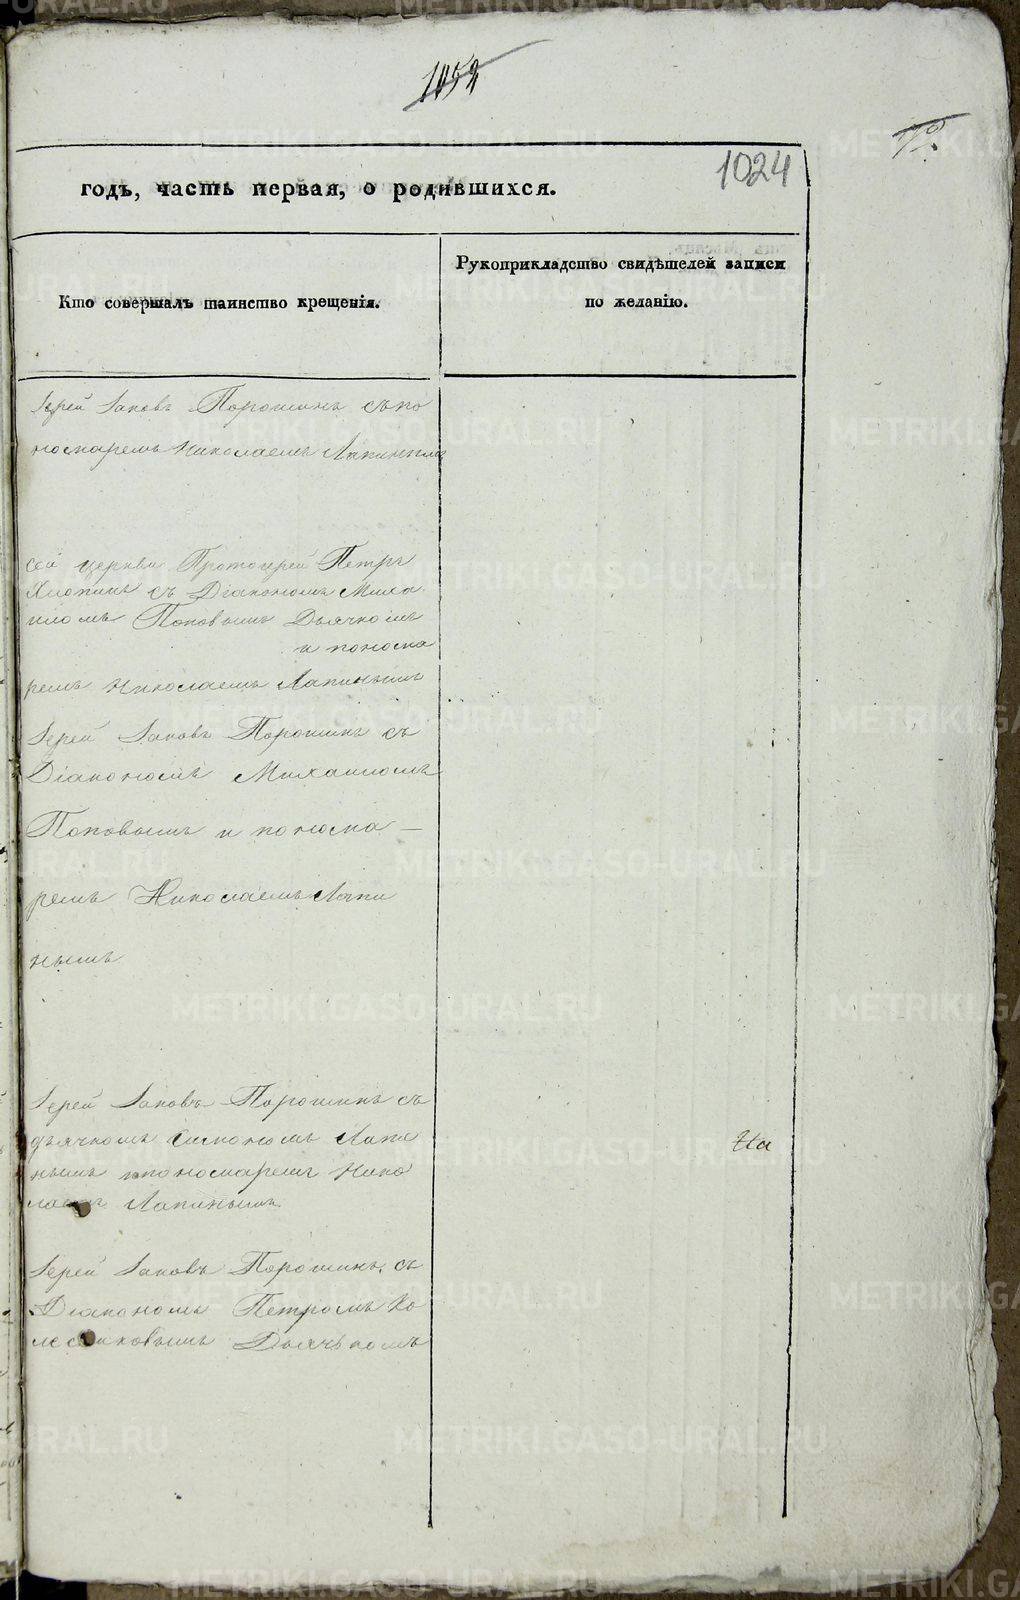 1052
1024
годъ, часть первая, о родившихся.
Кто совершалъ таинство крещенія.
Рукоприкладство свидѣтелей записи
по желанію.
Іерей Іаковъ Порошинъ съ по
номаремъ Николаемъ Лапинымъ
сей церкви Протоіерей Петръ
съ Діакономъ Миха
иломъ Поповымъ Дьячкомъ
и понома
ремъ Николаемъ Лапинымъ
Іерей Іаковъ Порошинъ съ
Діакономъ Михаиломъ
Поповымъ и понома —
ремъ Николаемъ Лапи
нымъ
Іерей Іаковъ Порошинъ съ
дьячкомъ Симономъ Лапи
нымъ и пономаремъ Нико
лаемъ Лапинымъ
На
Іерей Іаковъ Порошинъ съ
Діакономъ Петромъ Ко
лесниковымъ Дьячькомъ
METRIKI.GASO-URAL.RU